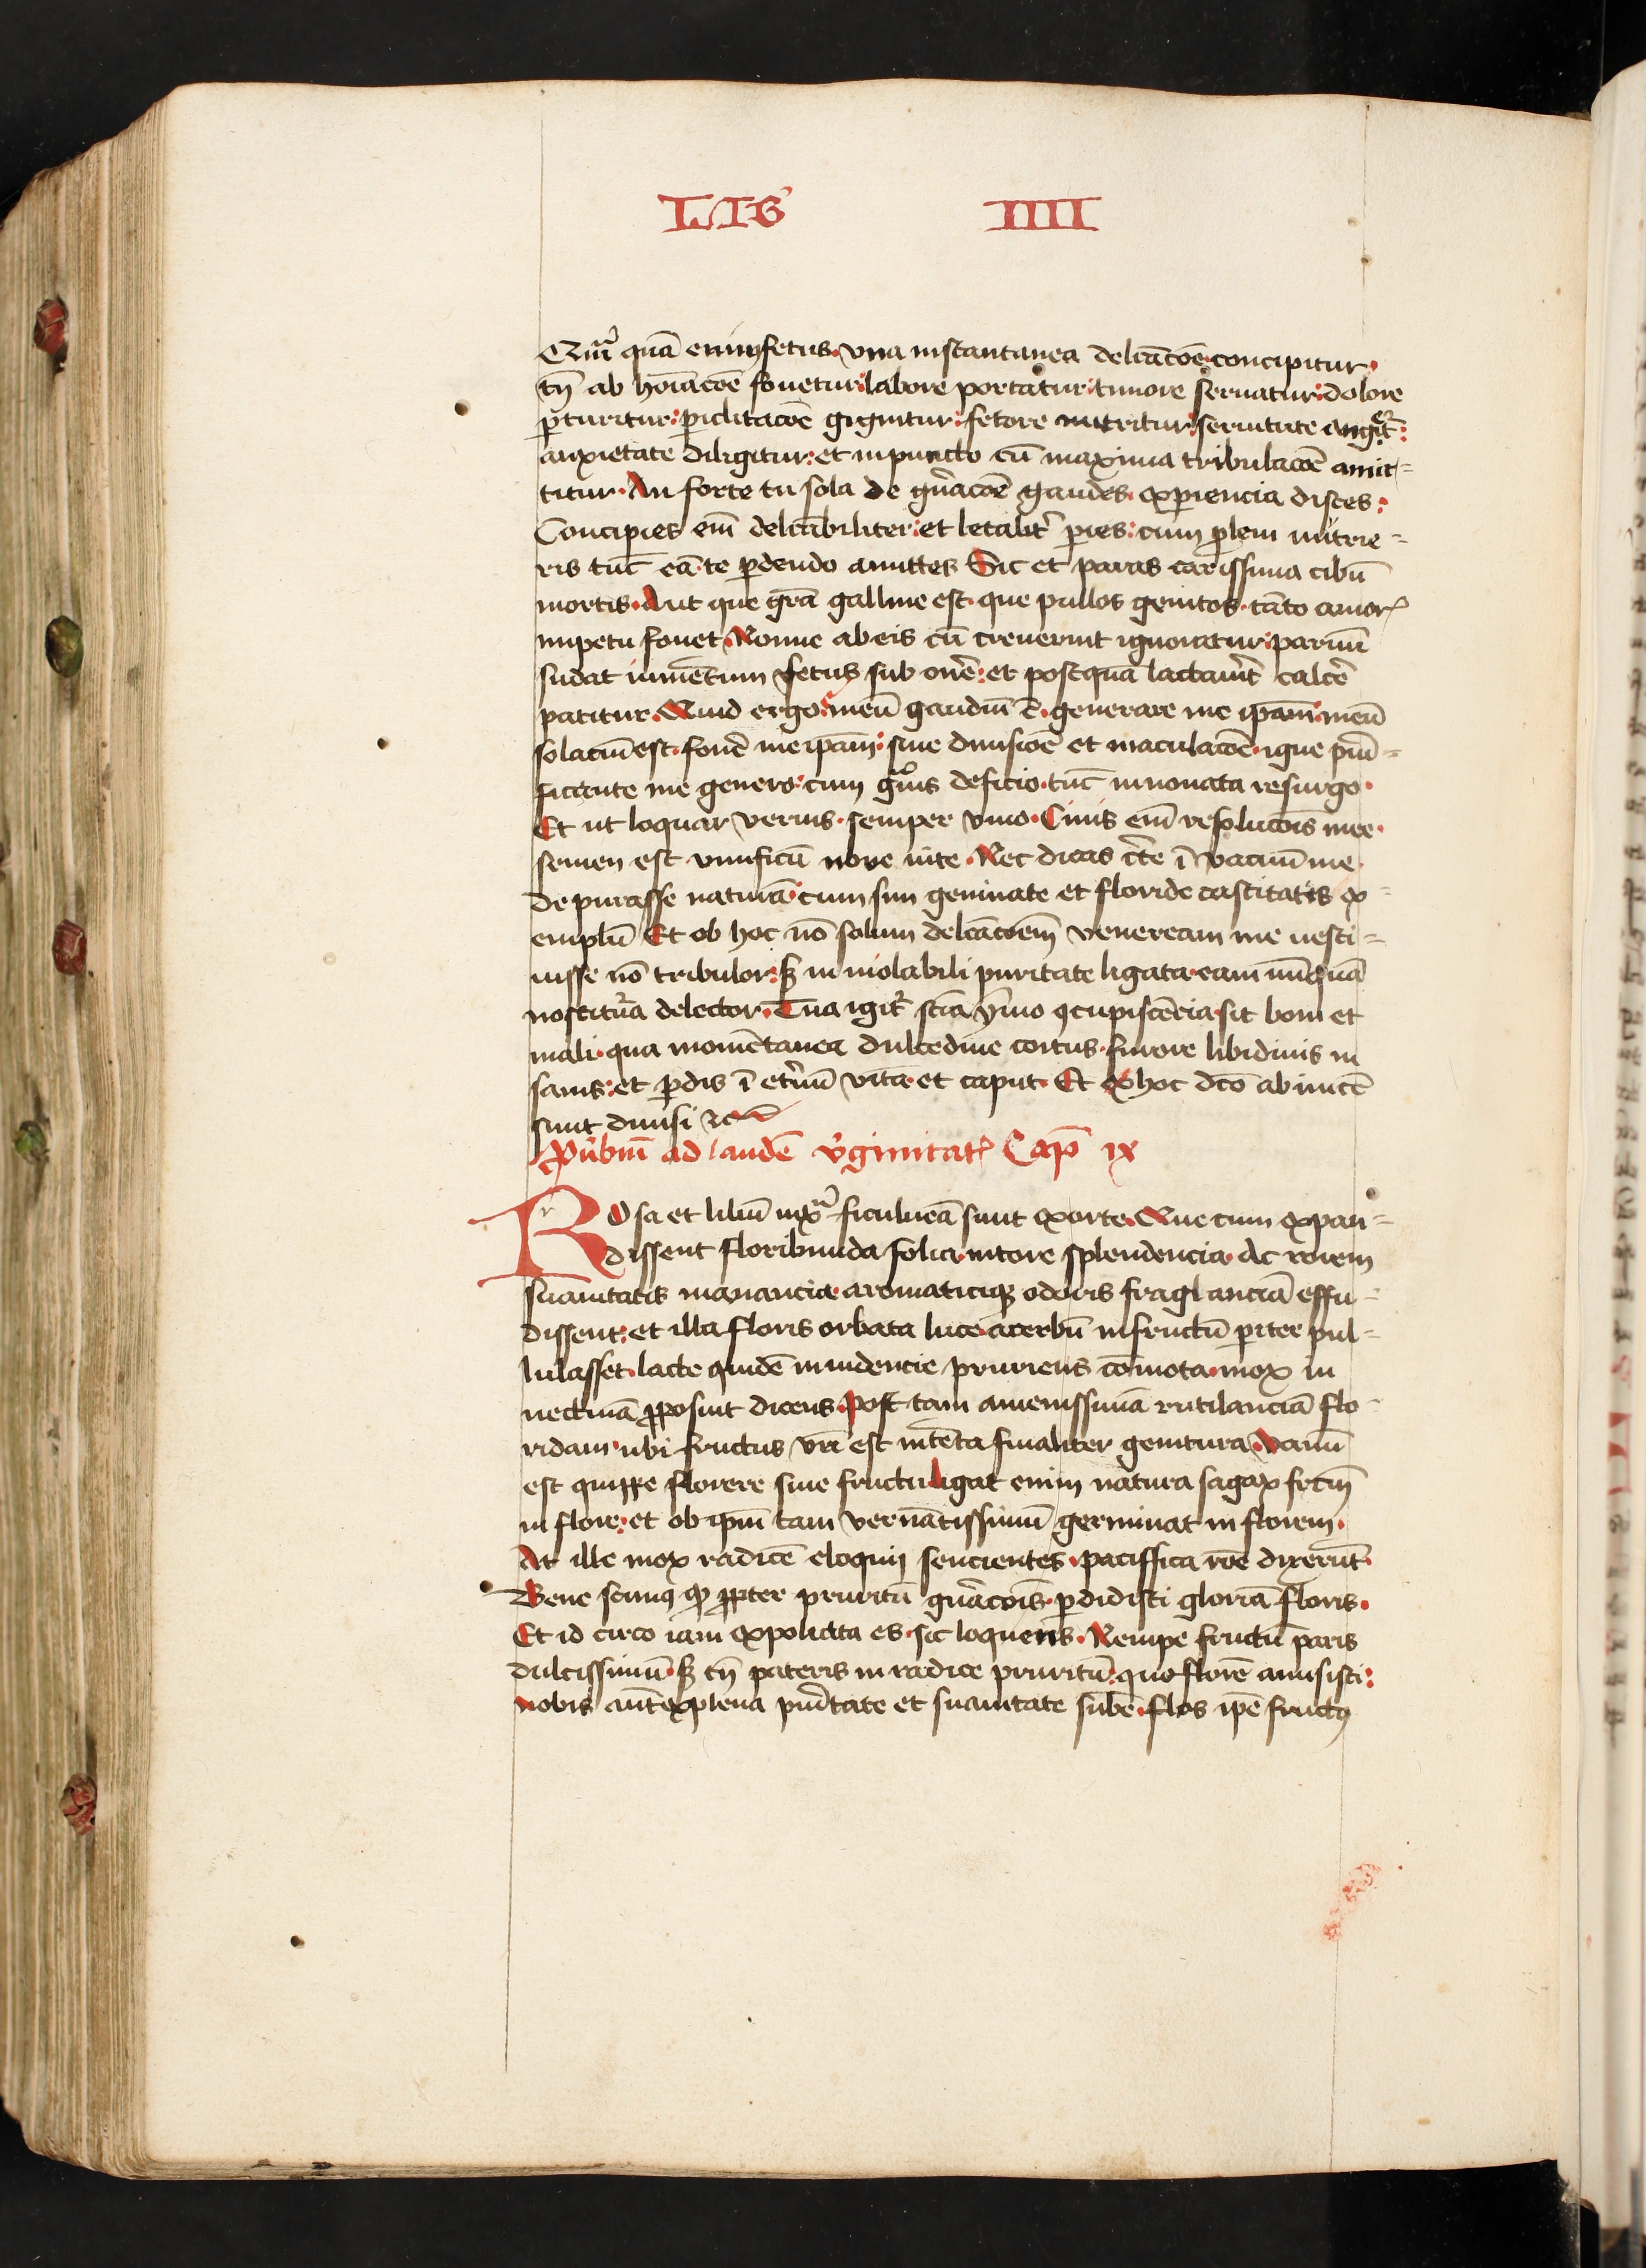 LIB IIII
Qm̄ quā enim fetus vna instantanea delcācōe concipitur
tn̄ ab hoīacōe fouetur labore portatur timore seruatur dolore
ꝑturitur ꝑiclitacōe gignitur fetore nutritur seruitute augetͬ
anxietate diligitur et in puncto cū maxima tribulacōe amit=
titur An forte tu sola de gn̄acōe gaudes exꝑiencia disces
Concipies em̄ delcābiliter et letalitͬ ꝑies cum ꝓlem nutrie=
ris tūc eā te ꝑdendo amittes Sic et paras carissima cibū
mortis Aut que gr̄a galline est que pullos genitos tāto amorꝭ
impetu fouet Nonne ab eis cū creuerint ignoratur paruū
sudat iumētum fetus sub onē et postquā lactauīt calcē
patitur Quid ergo meū gaudiū ē generare me ipam̄ meū
solaciū est fouē me ipam̄ siue diuisiōe et maculacōe igne puī=
ficante me genero cum gͣuis deficio tūc innouata resurgo
Et ut loquar verius semper viuo Cinis em̄ resolucōis mee
semen est viuificū noue uite Nec dicas c̄te ī vacuū me
depurasse naturā cum sim geminate et floride castitatis ex=
emplū Et ob hoc nō solum delcācōem veneream me nesci=
uisse nō tribulor sꝫ inuiolabili puritate ligata eam nūquā
noscitura delector Tua igitͬ scīa ymo ꝯcupiscēcia sit boni et
mali qua momētanea dulcedine coitus furore libidinis in
sanis et ꝑdis ī etͬnū vitā et caput Et ex hoc dc̄o abinuicē
sunt diuisi ⁊c
Ꝓuͬbiū ad laudē vͬginitatꝭ Capͫ ix
ROsa et liliū iuxͣ ficulneā sunt exorte Que cum expan=
dissent floribunda folia nitore splendencia Ac rorem
suauitatis manancia aromaticiqꝫ odoris fraglanciā effu=
dissent et illa floris orbata luce acerbū in fructū ꝑiter pul=
lulasset lacte quidē inuidencie pruriens cōmota mox in
uectiuā ꝓposuit dicens Post tam amenissimā rutilanciā flo=
ridam ubi fructus vr̄i est intēta finaliter genitura Vanū
est quippe florere sine fructu ligat enim natura sagax fctm̄
in flore et ob ipm̄ tam vernātissimū germinat in florem
At ille mox radicē eloquij sencientes paciffica rōe dixerūt
Bene scimꝰ ꝙ ꝓpter pruritū gn̄acōis ꝑdidisti gloriā floris
Et id circo iam expoliata es sic loquens Nempe fructū paris
dulcissimū sꝫ tn̄ pateris in radice pruritū quo florē amisisti
nobis aūt explena puritate et suauitate subē flos ipē fructꝰ